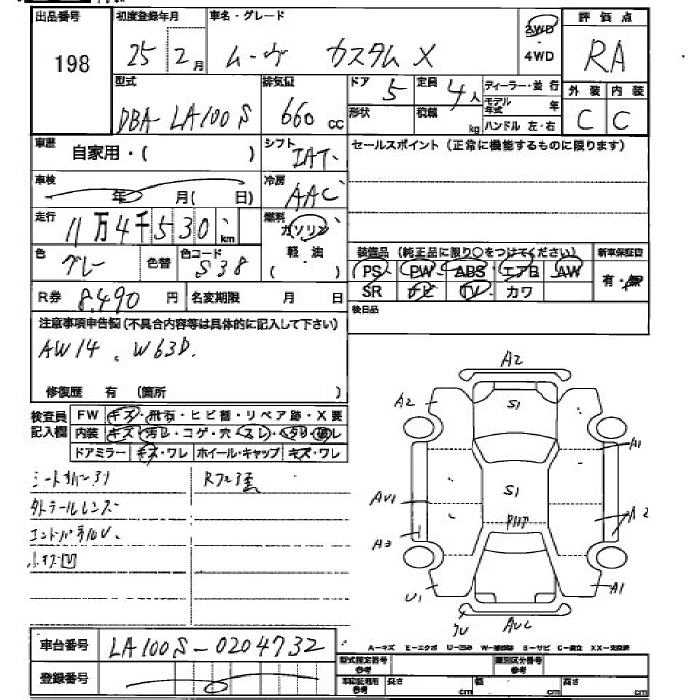 出品番号 初度登録年月 車名・グレード 2WD 評価点
198 25 2月 ムーヴ カスタム X 4WD RA
型式 排気量 ドア 5 定員 4人 ディーラー・並行 外装 内装
DBA-LA100S 660 cc 形状 積載 kg モデル年式 年 C C
ハンドル 左・右
車歴 自家用・( ) シフト IAT セールスポイント (正常に機能するものに限ります)
車検 年 月( 日) 冷房 AAC
走行 11万4千530 km 燃料 ガソリン
色 グレー 色替 色コード S38 軽油 ( )
装備品 (純正品に限り○をつけてください) 新車保証書
PS PW ABS エアB AW 有・無
SR ナビ TV カワ
R券 8,490 円 名変期限 月 日 後日品
注意事項申告欄(不具合内容等は具体的に記入して下さい)
AW14、W63D.
修復歴 有 (箇所 )
検査員記入欄 FW キズ・飛石・ヒビ割・リペア跡・X要
内装 キズ・汚レ・コゲ・穴・スレ・タリ・破レ
ドアミラー キズ・ワレ ホイール・キャップ キズ・ワレ
外テールレンズ
小キズ凹
A2
A2 S1
A1
AU1 S1 A2
A3
U1 A1
車台番号 LA100S-0204732
登録番号
A=キズ E=エクボ U=凹み W=補修跡 S=サビ C=腐食 XX=交換済
型式指定番号 参考 類別区分番号 参考
長さ cm 幅 cm 高さ cm